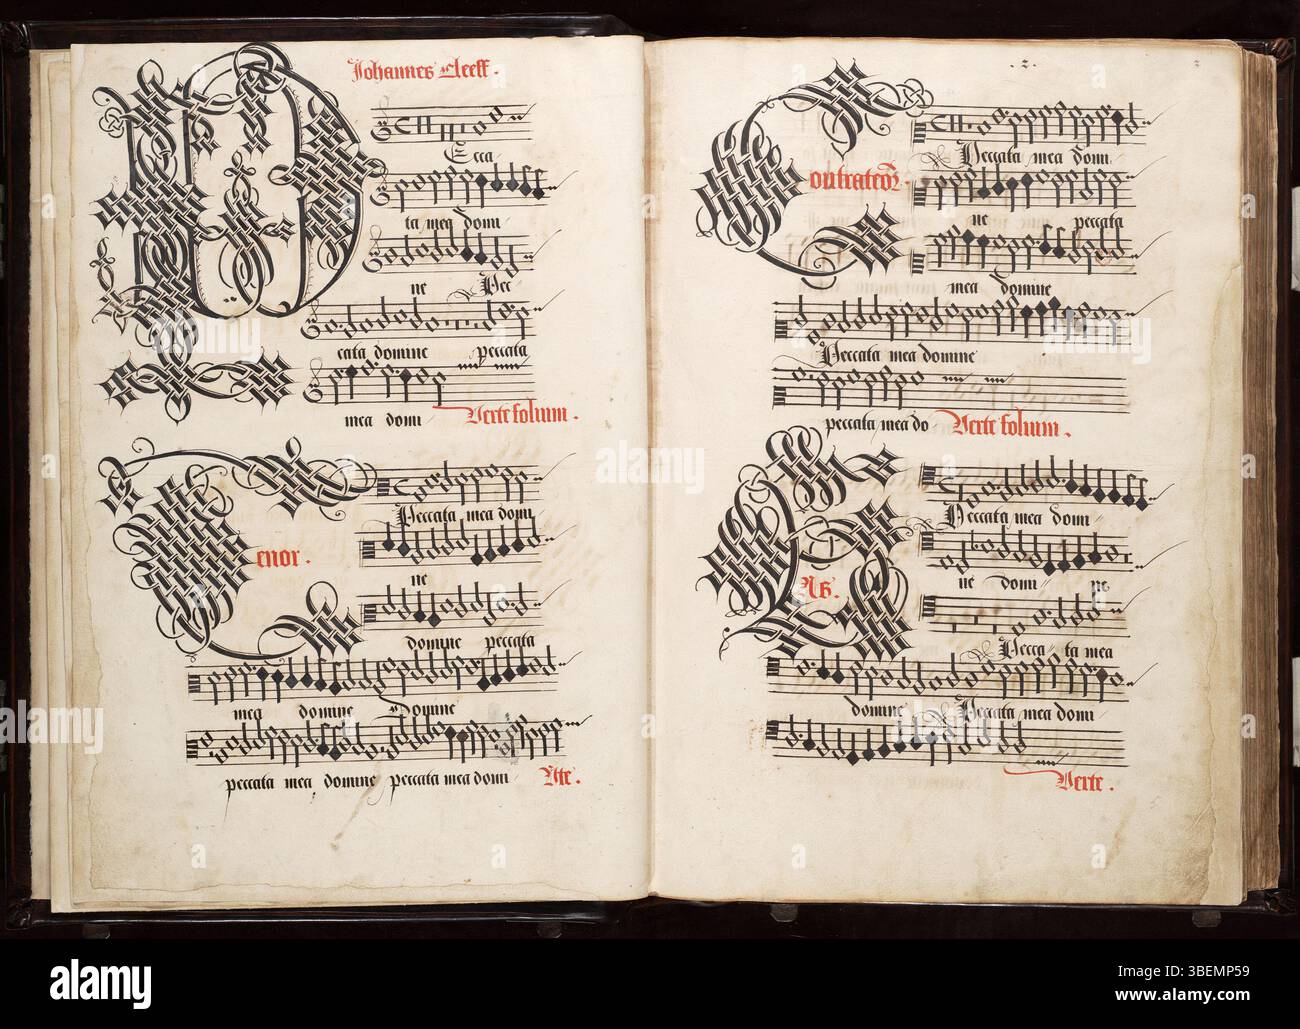 Johannes Cleeff.
P
Ecca
ta mea domi
ne Pec
cata domine peccata
mea domi Verte folium.
Tenor.
Peccata mea domi
ne
domine peccata
mea domine Domine
peccata mea domine peccata mea domi Vte.
.2. 2
Contrateor.
Peccata mea domi
ne peccata
mea domine
Peccata mea domine
peccata mea do Verte folium.
Peccata mea domi
ne domi pe
Pecca ta mea
domine Peccata mea domi
Verte.
alamy
Image ID: 3BEMP59
www.alamy.com